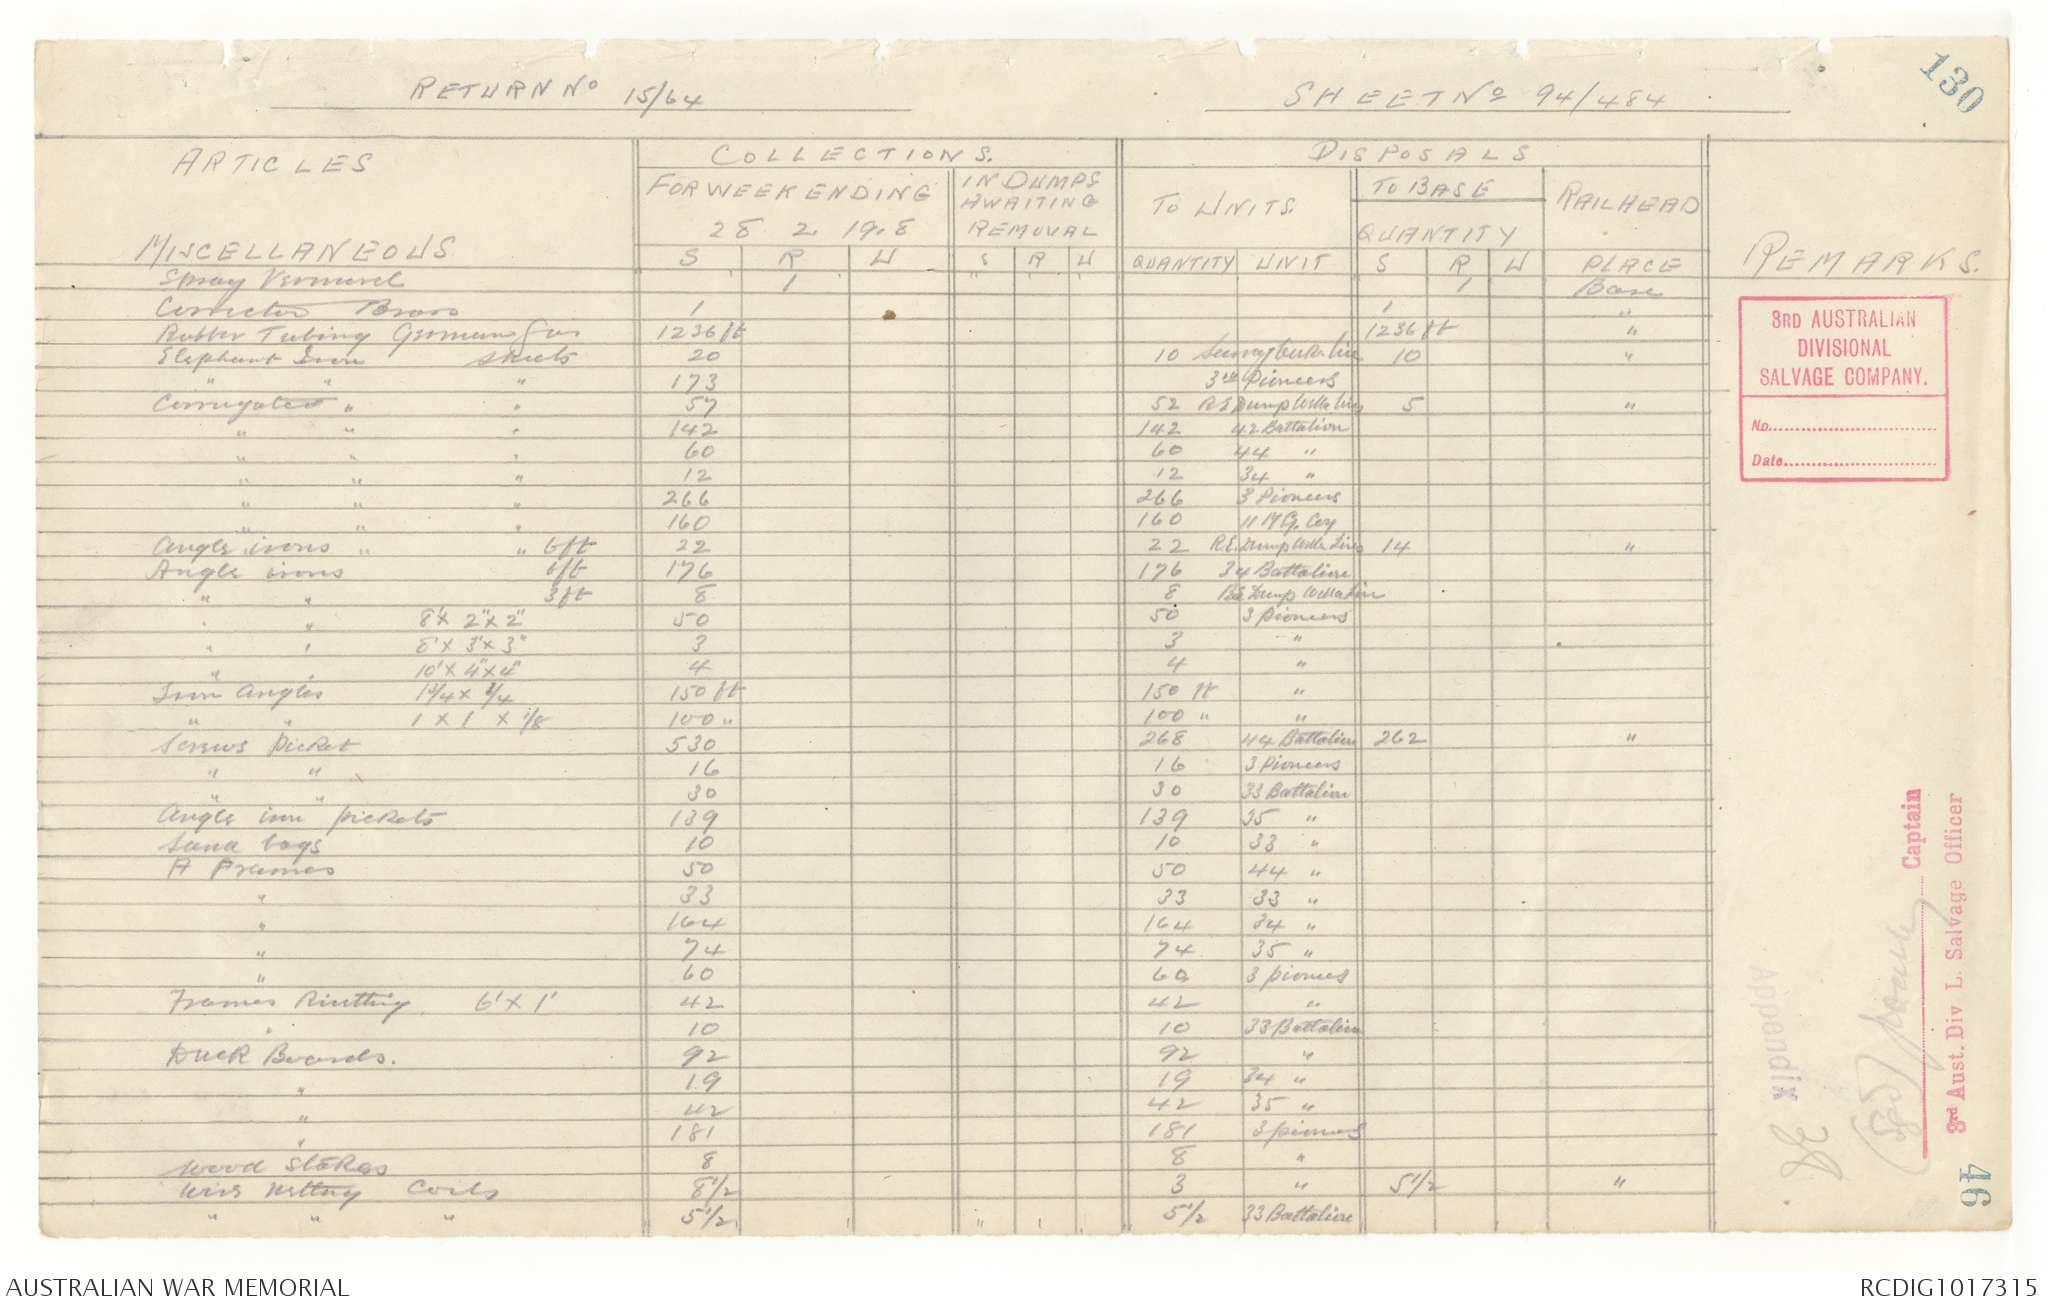 130
RETURN No 15/64 SHEET No 94/484
ARTICLES COLLECTIONS. DISPOSALS
FOR WEEK ENDING IN DUMPS TO UNITS. TO BASE RAILHEAD
28. 2. 1918 AWAITING REMOVAL QUANTITY
MISCELLANEOUS S R U S R U QUANTITY UNIT S R U PLACE REMARKS.
Spray Vermorel 1 1 Base
Corrector Brass 1 1 "
Rubber Tubing German Gas 1236 ft 1236 ft "
Elephant Iron Sheets 20 10 10 "
" " " 173 3rd Pioneers
Corrugated " " 57 52 R.E Dump 5 "
" " " 142 142 42 Battalion
" " " 60 60 44 "
" " " 12 12 34 "
" " " 266 266 3 Pioneers
" " " 160 160 11 M G. Coy
Angle irons " " 6ft 22 22 R.E. Dump 14 "
Angle irons 6ft 176 176 34 Battalion
" " 3ft 8 8 R.E Dump
" " 8' x 2" x 2" 50 50 3 pioneers
" " 8' x 3" x 3" 3 3 "
" " 10' x 4" x 4" 4 4 "
Iron Angles 1 3/4 x 3/4 150 ft 150 ft "
" " 1 x 1 x 1/8 100 " 100 " "
Screws picket 530 268 44 Battalion 262 "
" " 16 16 3 Pioneers
" " 30 30 33 Battalion
Angle iron pickets 139 139 35 "
Sand bags 10 10 33 "
A Frames 50 50 44 "
" 33 33 33 "
" 164 164 34 "
" 74 74 35 "
" 60 60 3 pioneers
Frames Rivetting 6' x 1' 42 42 "
" 10 10 33 Battalion
Duck Boards. 92 92 "
" 19 19 34 "
" 42 42 35 "
" 181 181 3 pioneers
Wood Stakes 8 8 "
Wire netting Coils 8 1/2 3 " 5 1/2 "
" " " 5 1/2 5 1/2 33 Battalion
3RD AUSTRALIAN
DIVISIONAL
SALVAGE COMPANY.
No.
Date
Captain
3rd Aust. Div L. Salvage Officer
Appendix
46
AUSTRALIAN WAR MEMORIAL RCDIG1017315